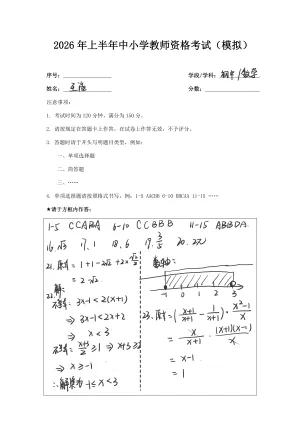 2026年上半年中小学教师资格考试（模拟）
序号：
学段/学科：初中/数学
姓名：
分数：
注意事项：
1. 考试时间为120分钟，满分为150分。
2. 请按规定在答题卡上作答，在试卷上作答无效，不予评分。
3. 答题时请于开头写明题目类型，例如：
一、单项选择题
二、简答题
三、……
4. 单项选择题请按规格式书写，例：1-5 AACBB 6-10 BBCAA 11-15 ……
★请于方框内作答：
1-5 CCABA 6-10 CCBBB 11-15 ABBDA
16.√5 17.1 18.6 19.3/5 20.
21.原式=1+1-2√2+2×√2/2
=2-√2
22.解：
3x-1<2(x+1)
⇒3x-1<2x+2
⇒x<3
x+3/2≥1⇒x+3≥2
⇒x≥-1
-1≤x<3
数轴：
-1 0 1 2 3
23.原式=(x/x+1+1/x+1)·x²-1/x
=x/x+1·(x+1)(x-1)/x
=x-1
=1